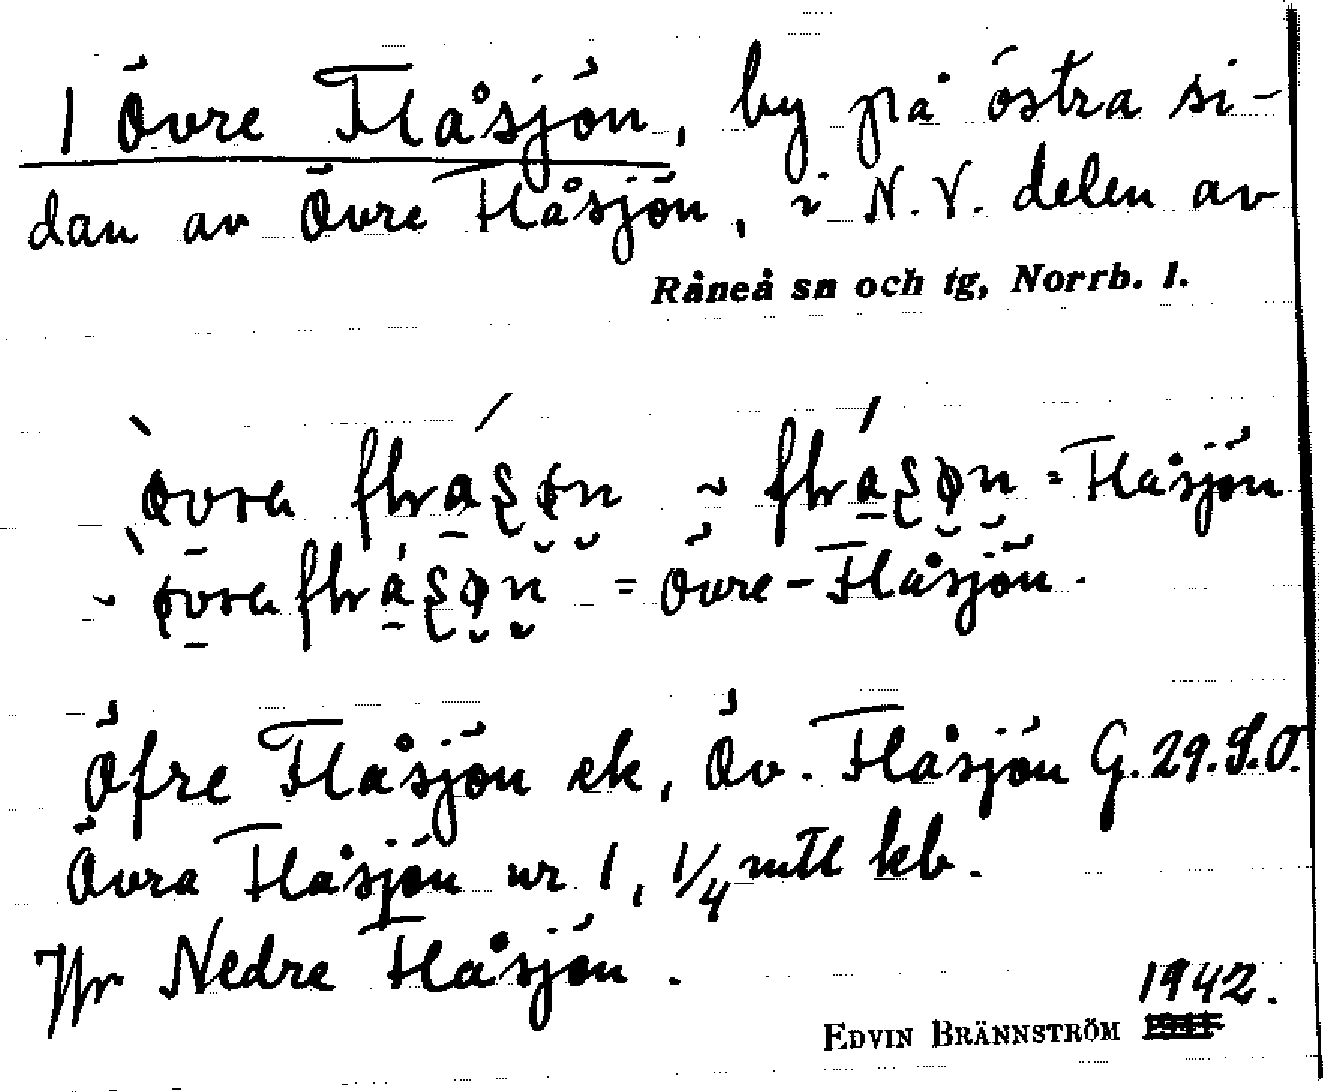 1 Övre Flåsjön, by på östra si-
dan av Övre Flåsjön, i N. V. delen av
Råneå sn och tg, Norrb. l.
= Flåsjön
= Övre-Flåsjön.
Öfre Flåsjön ek, Öv. Flåsjön G. 29. S.O.
Övra Flåsjön nr 1, 1/4 mtl kb.
Jfr Nedre Flåsjön.
1942.
EDVIN BRÄNNSTRÖM